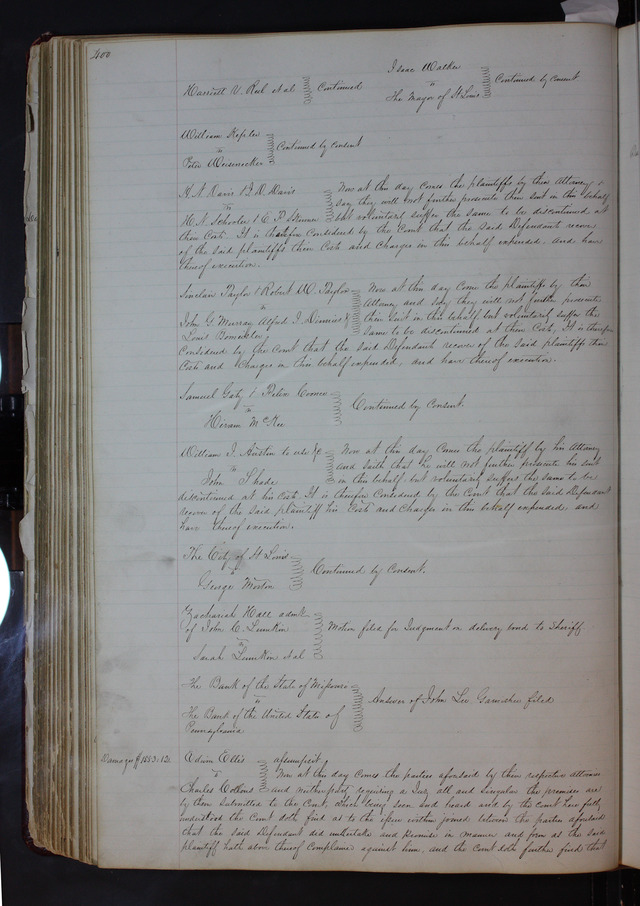 400
Harriett V. Reel et al } Continued
Isaac Walker
vs
The Mayor of St Louis } Continued by consent
William Kepler
vs
Peter Weisenecker } Continued by consent
H. N. Davis & B. D. Davis } Now at this day comes the plaintiffs by their Attorney &
vs say they will not further prosecute their suit in this behalf
H. N. Schooler & E. P. Skinner but voluntarily suffer the same to be discontinued at
their Costs. It is therefore Considered by the Court that the said Defendants recover
of the said plaintiffs their Costs and Charges in this behalf expended, and have
thereof execution.
Sinclair Taylor & Robert W. Taylor } Now at this day Come the plaintiffs by their
vs Attorney and say they will not further prosecute
John G. Murray Alfred J. & their suit in this behalf, but voluntarily suffer the
Louis same to be discontinued at their Costs, It is therefore
Considered by the Court that the said Defendants recover of the said plaintiffs their
Costs and Charges in this behalf expended, and have thereof execution.
Samuel Gaty &
vs
Hiram McKee } Continued by Consent.
William J. Austin to use &c } Now at this day Comes the plaintiff by his Attorney
vs and saith that he will not further prosecute his suit
John Shade in this behalf but voluntarily suffer the same to be
discontinued at his Costs It is therefore Considered by the Court that the said Defendant
recover of the said plaintiff his Costs and Charges in this behalf expended, and
have thereof execution.
The City of St Louis
vs
George Morton } Continued by Consent.
Zachariah Hall admr
of John C. Lumkin
vs
Sarah Lumkin et al } Motion filed for Judgment on delivery bond to Sheriff
The Bank of the State of Missouri
vs
The Bank of the United States of
Pennsylvania } Answer of John Lee Garnishee filed
Damages $1553.12
Edwin Ellis } assumpsit,
vs Now at this day Comes the parties aforesaid by their respective attornies
Charles Collins and neither party requiring a Jury all and Singular the premises are
by them Submitted to the Court, which being seen and heard and by the Court here fully
understood the Court doth find as to the issue within joined between the parties aforesaid
that the said Defendant did undertake and promise in manner and form as the said
plaintiff hath above thereof Complained against him, and the Court doth further find that